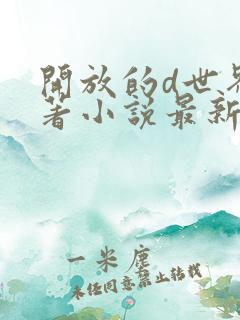 開放的d世界
著小說最新
一米塵
未經同意禁止轉載